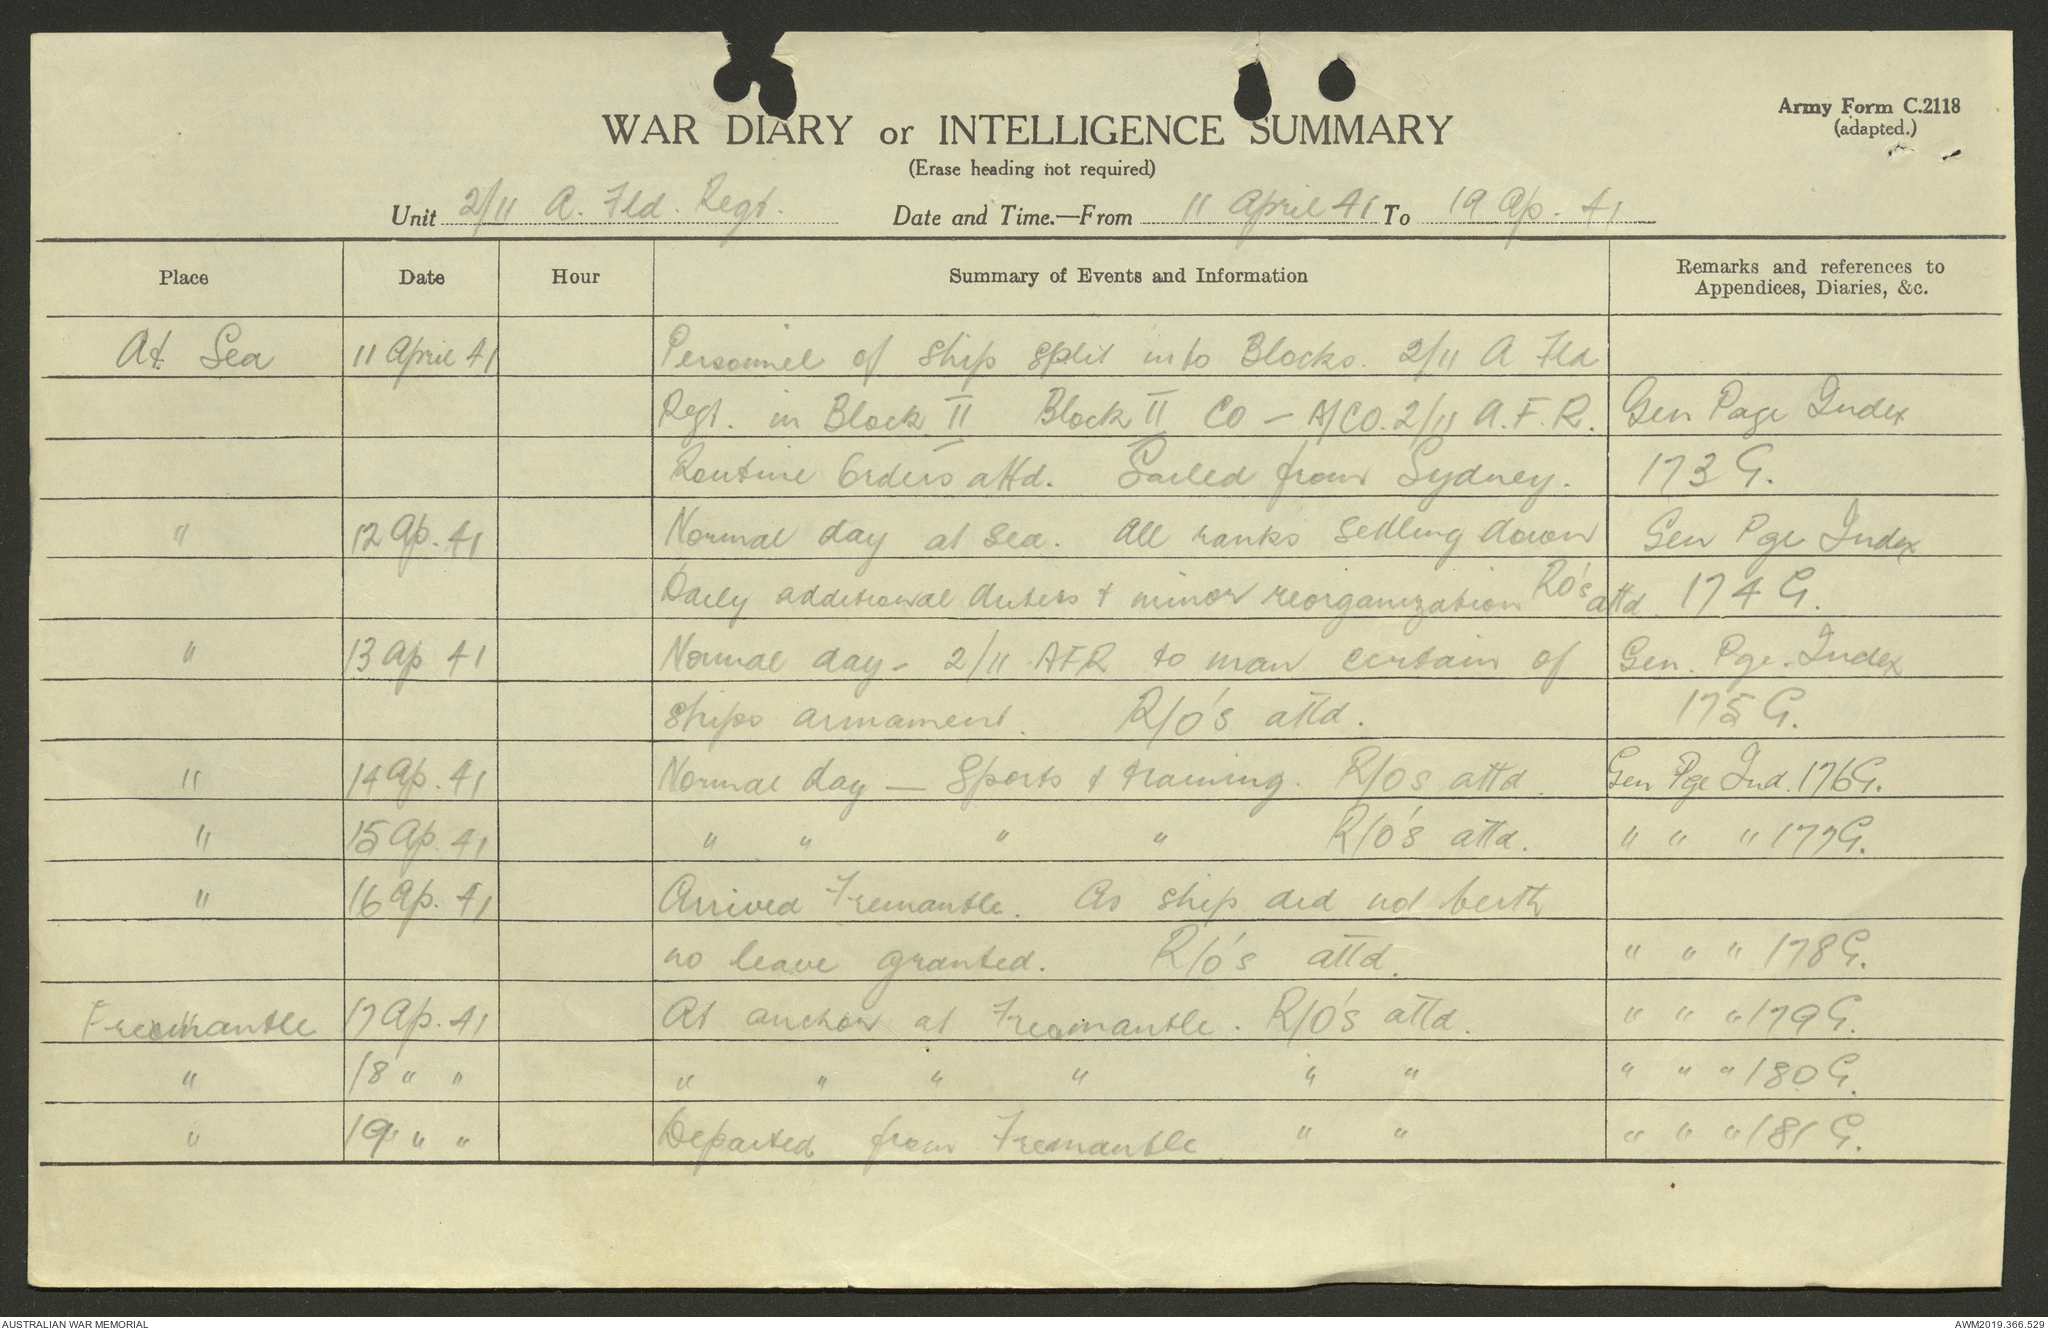 Army Form C.2118
(adapted.)
WAR DIARY or INTELLIGENCE SUMMARY
(Erase heading not required)
Unit 2/11 A. Fld. Regt. Date and Time.—From 11 April 41 To 19 Ap. 41
Place Date Hour Summary of Events and Information Remarks and references to
Appendices, Diaries, &c.
At Sea 11 April 41 Personnel of ship split into Blocks. 2/11 A Fld
Regt. in Block II Block II CO - A/CO. 2/11 A.F.R. Gen Page Index
Routine Orders attd. Sailed from Sydney. 173 G.
" 12 Ap. 41 Normal day at sea. All ranks settling down Gen Pge Index
Daily additional duties + minor reorganization RO's attd 174 G.
" 13 Ap 41 Normal day - 2/11 AFR to man certain of Gen. Pge. Index
ships armament. R/O's attd. 175 G.
" 14 Ap. 41 Normal day — Sports + training. R/Os attd. Gen Pge Ind. 176G.
" 15 Ap. 41 " " " " R/O's attd. " " " 177G.
" 16 Ap. 41 Arrived Fremantle. As ship did not berth
no leave granted. R/O's attd. " " " 178G.
Freemantle 17 Ap. 41 At anchor at Freemantle. R/O's attd. " " " 179G.
" 18 " " " " " " " " " " " 180G.
" 19 " " Departed from Fremantle " " " " " 181G.
AUSTRALIAN WAR MEMORIAL AWM2019.366.529